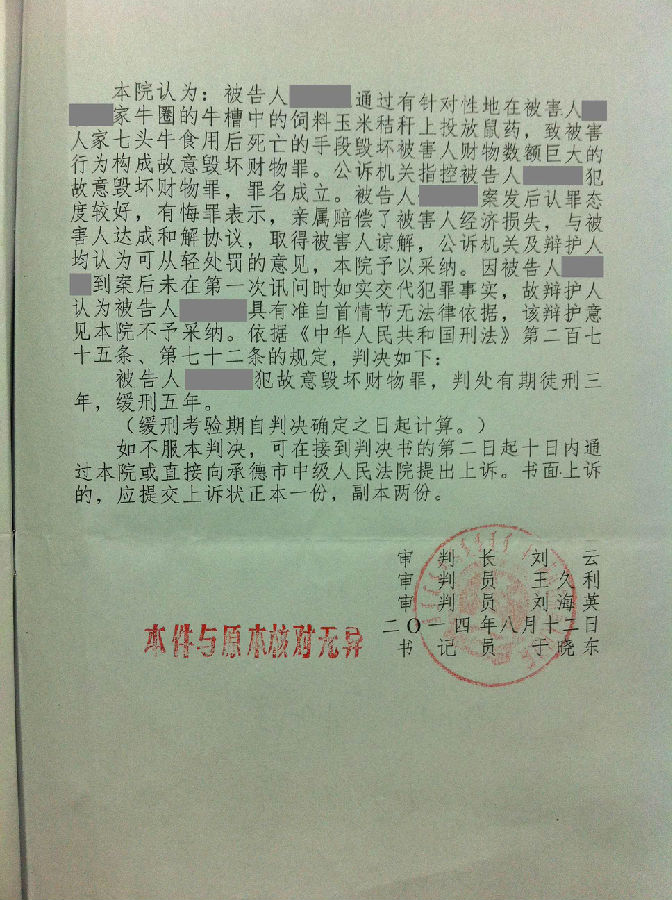 本院认为：被告人 通过有针对性地在被害人
家牛圈的牛槽中的饲料玉米秸秆上投放鼠药，致被害
人家七头牛食用后死亡的手段毁坏被害人财物数额巨大的
行为构成故意毁坏财物罪。公诉机关指控被告人 犯
故意毁坏财物罪，罪名成立。被告人 案发后认罪态
度较好，有悔罪表示，亲属赔偿了被害人经济损失，与被
害人达成和解协议，取得被害人谅解，公诉机关及辩护人
均认为可从轻处罚的意见，本院予以采纳。因被告人
到案后未在第一次讯问时如实交代犯罪事实，故辩护人
认为被告人 具有准自首情节无法律依据，该辩护意
见本院不予采纳。依据《中华人民共和国刑法》第二百七
十五条、第七十二条的规定，判决如下：
被告人 犯故意毁坏财物罪，判处有期徒刑三
年，缓刑五年。
（缓刑考验期自判决确定之日起计算。）
如不服本判决，可在接到判决书的第二日起十日内通
过本院或直接向承德市中级人民法院提出上诉。书面上诉
的，应提交上诉状正本一份，副本两份。
审 判 长 刘 云
审 判 员 王久利
审 判 员 刘海英
二〇一四年八月十二日
本件与原本核对无异
书 记 员 于晓东